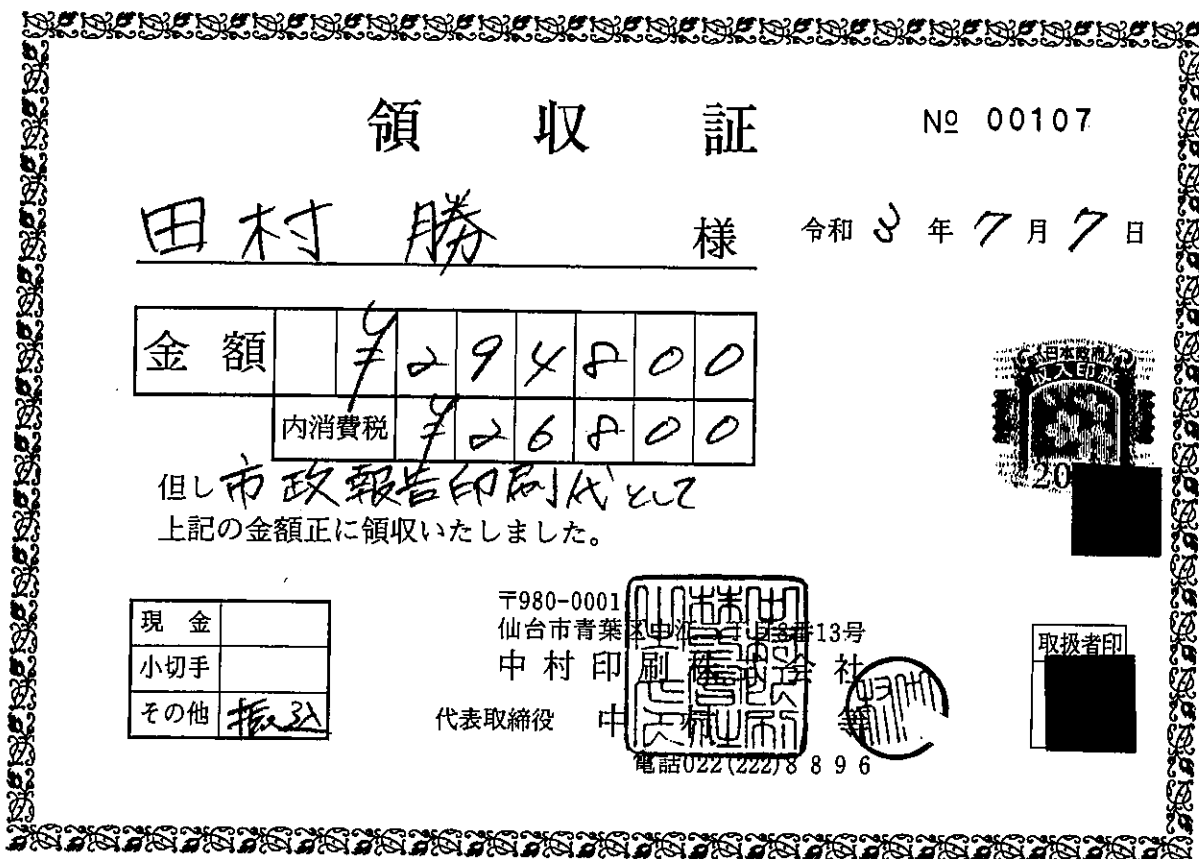 領収証
№ 00107
田村 勝 様
令和 3 年 7 月 7 日
金額 ¥294800
内消費税 ¥26800
但し 市政報告印刷代として
上記の金額正に領収いたしました。
日本政府
収入印紙
20
現金
小切手
その他 振込
〒980-0001
仙台市青葉区中江 番13号
中村印刷株式会社
代表取締役 中村 等
電話022(222)8896
取扱者印